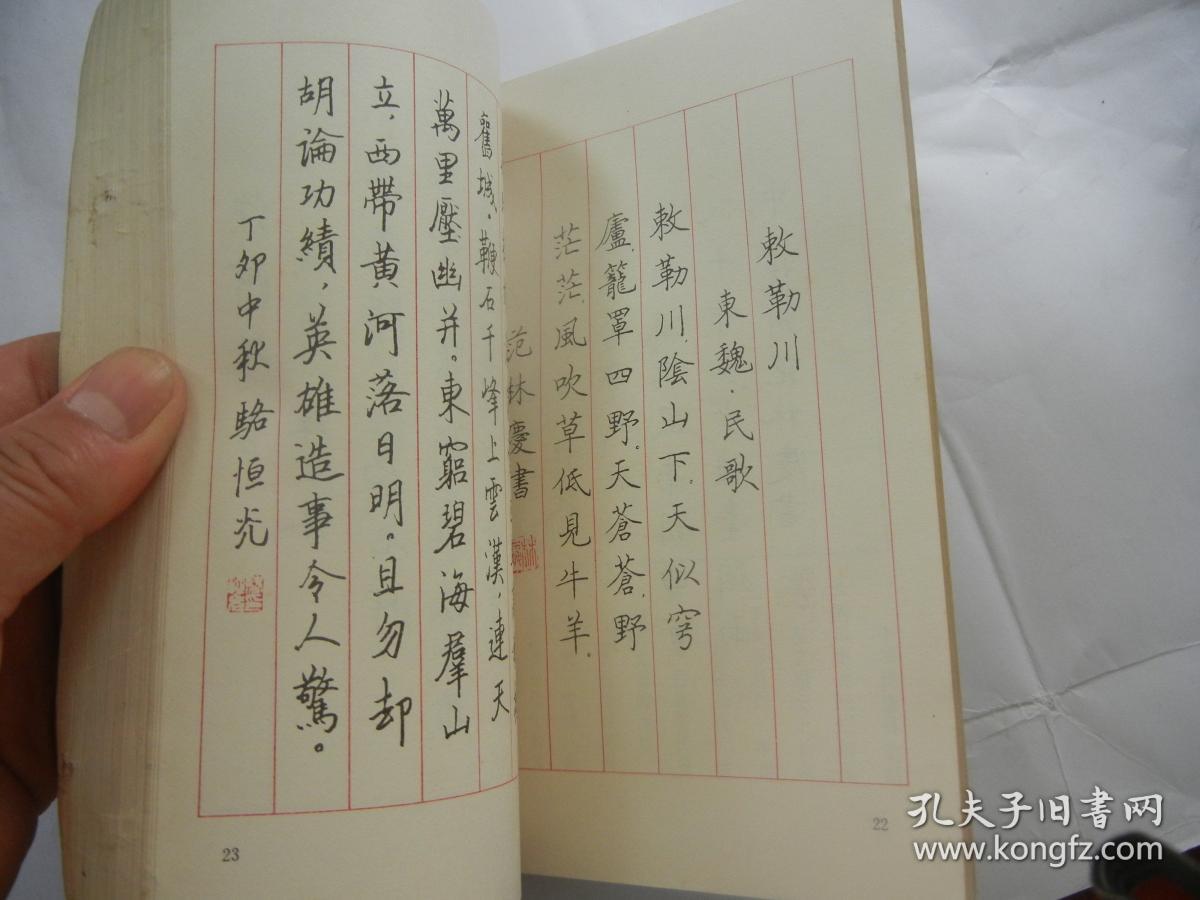 敕勒川
東魏·民歌
敕勒川,陰山下。天似穹
廬,籠罩四野。天蒼蒼,野
茫茫,風吹草低見牛羊。
范林慶書
22
舊城。鞭石千峰上雲漢,連天
萬里壓幽并。東窮碧海羣山
立,西帶黄河落日明。且勿却
胡論功績,英雄造事令人驚。
丁卯中秋 駱恒光
23
孔夫子旧书网
www.kongfz.com